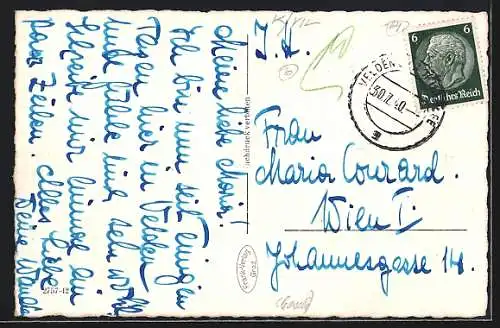 Meine liebe Maria!
Ich bin nun seit einigen
Tagen hier in Velden
und fühle mich sehr wohl
Schreibe mir einmal ein
paar Zeilen. Alles Liebe
Deine Wanda
2757-12
Nachdruck verboten
Graz
I. H.
6 6
Deutsches Reich
VELDEN
30.7.40
Frau
Maria Conrard.
Wien I.
Johannesgasse 14.